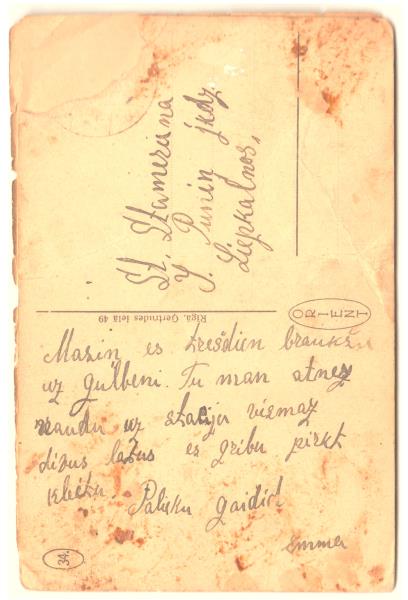 St. Stameriena
J. Puriņ jkdz
Liepkalnos,
Rīgā, Ģertrudes ielā 49
ORIENT
Mazin es trešdien braukšu
uz gulbeni. Tu man atnez
naudu uz staciju vizmaz
divus latus es gribu pirkt
kleitu. Palieku gaidot
34.